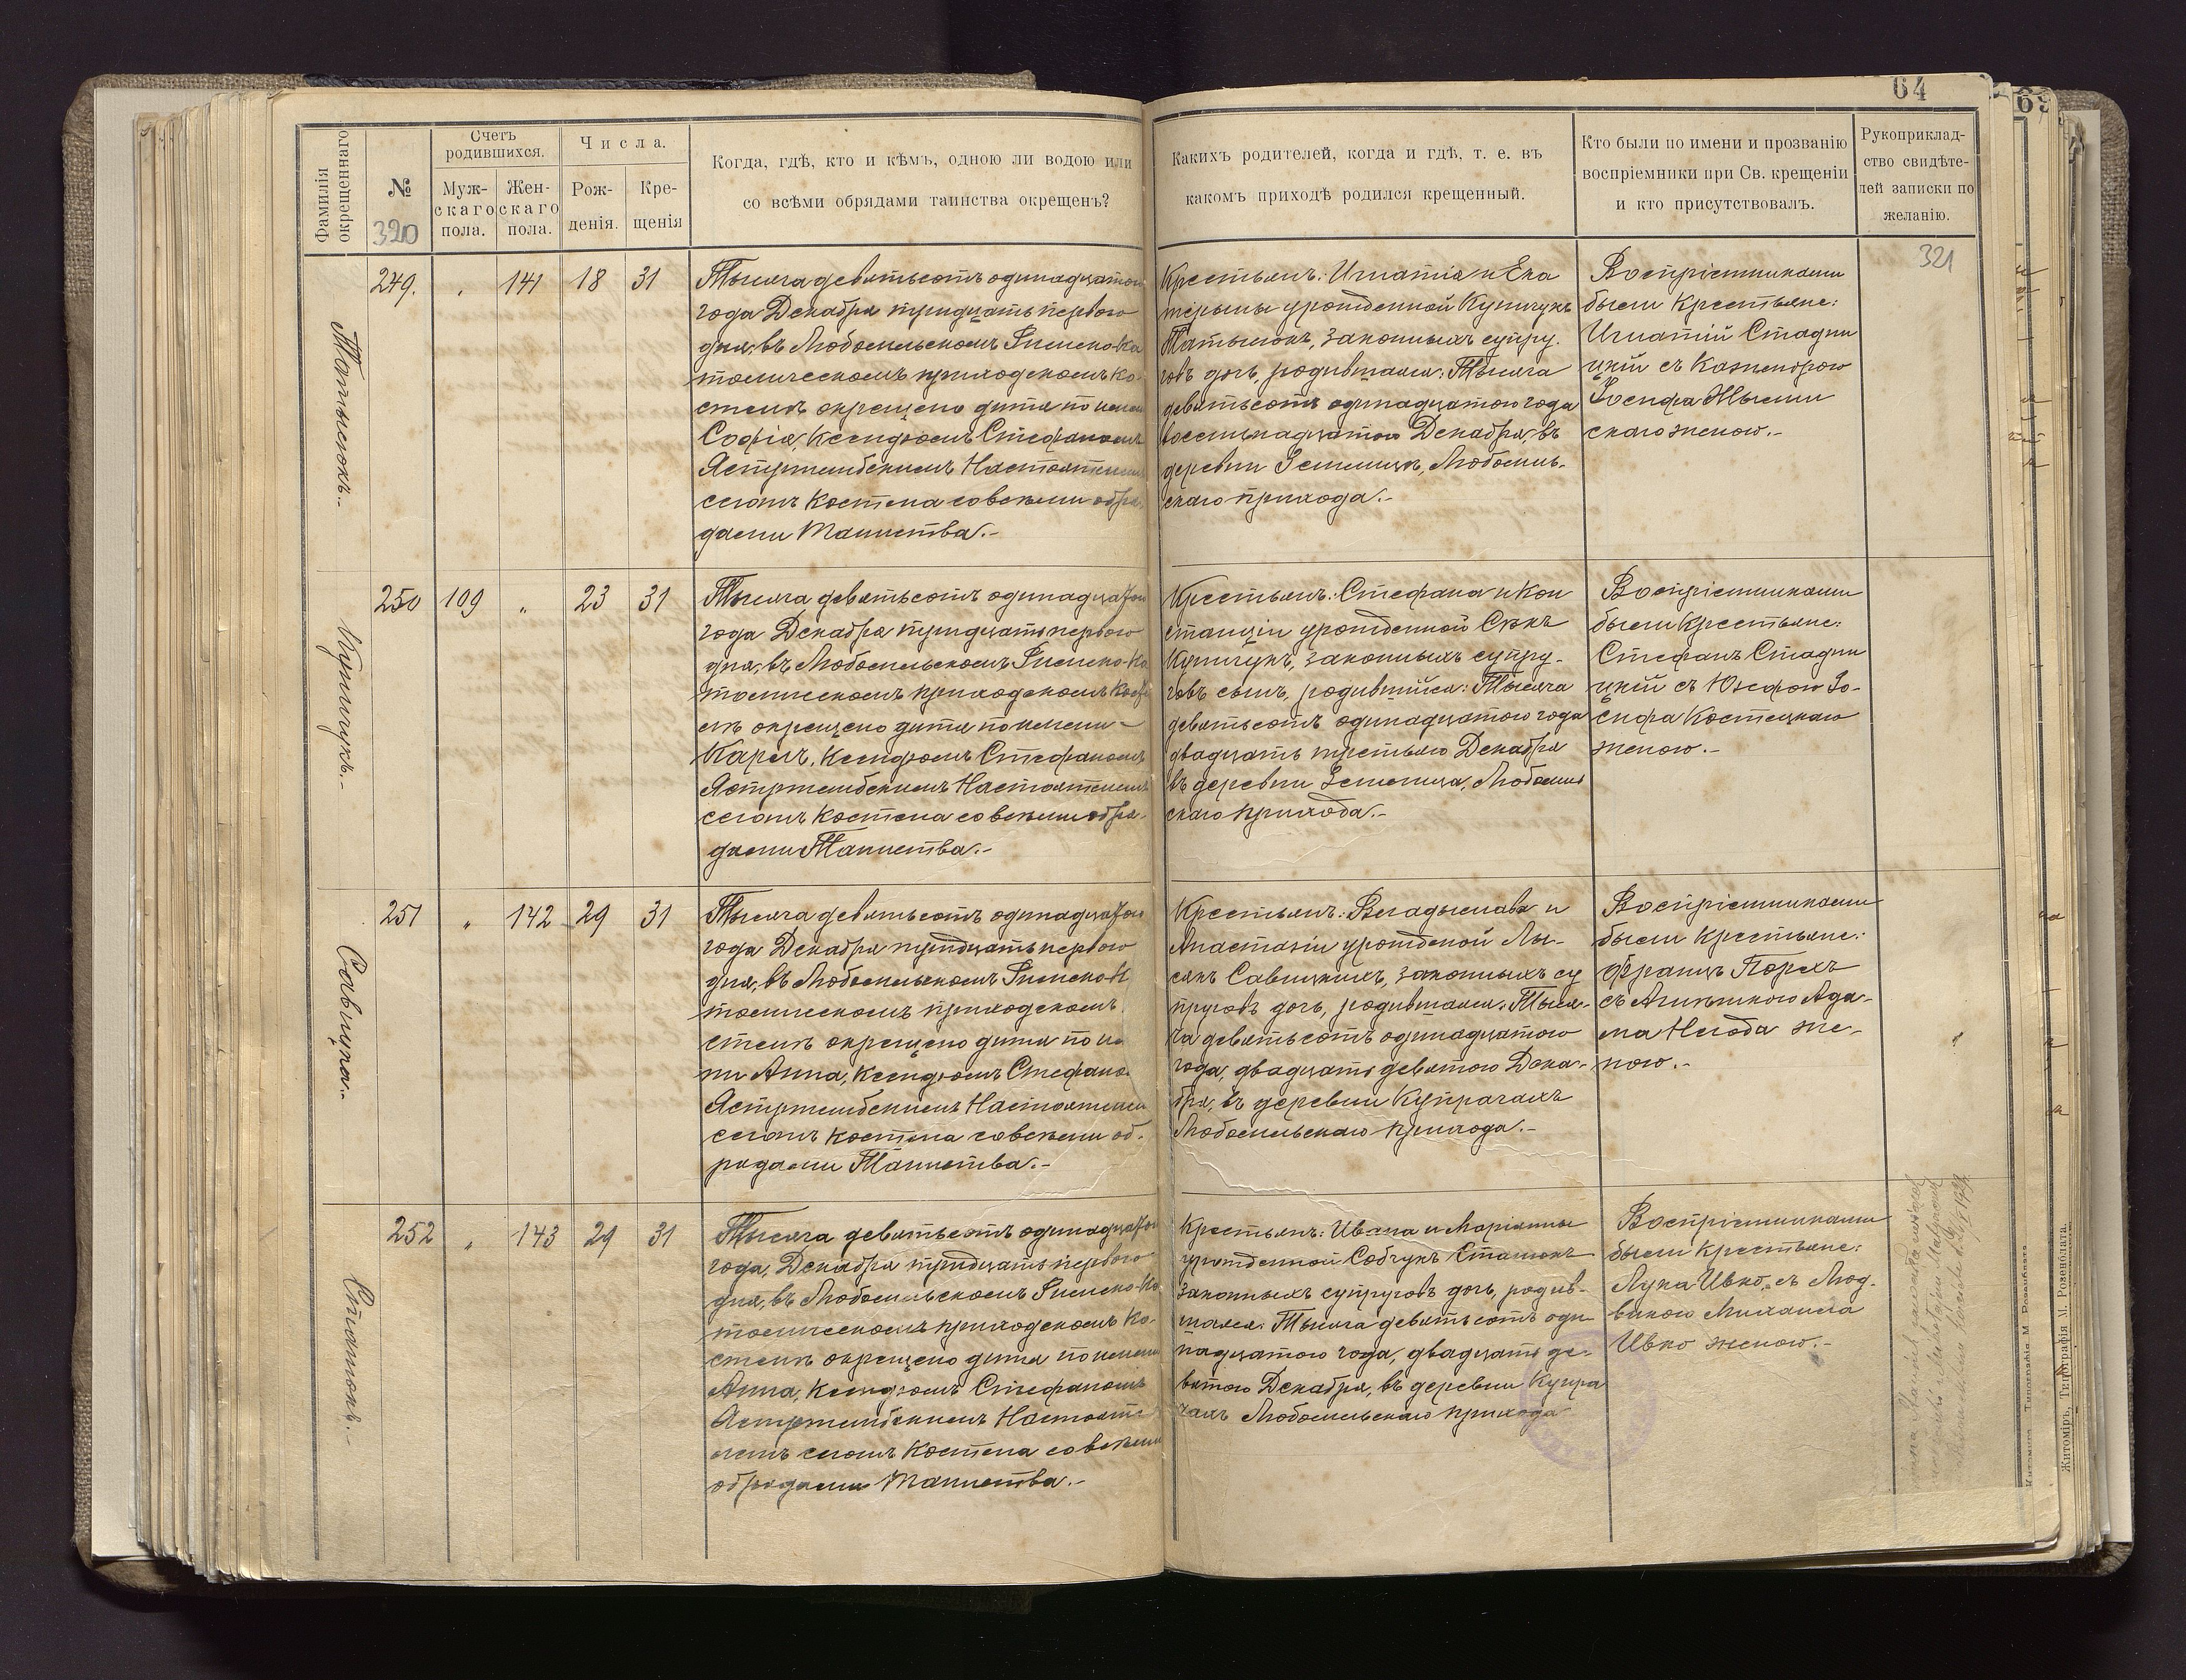 64
69
Фамилія окрещеннаго
№
320
Счетъ родившихся.
Муж-
скаго
пола.
Жен-
скаго
пола.
Числа.
Рож-
денія.
Кре-
щенія
Когда, гдѣ, кто и кѣмъ, одною ли водою или
со всѣми обрядами таинства окрещенъ?
Какихъ родителей, когда и гдѣ, т. е. въ
какомъ приходѣ родился крещенный.
Кто были по имени и прозванію
воспріемники при Св. крещеніи
и кто присутствовалъ.
Рукоприклад-
ство свидѣте-
лей записки по
желанію.
321
249. " 141 18 31
Тысяча девятьсотъ одинадцатого
года Декабря тридцать перваго
дня, въ Любомльскомъ Римско-Ка
толическомъ приходскомъ Ко-
стелѣ окрещено дитя по имени
Софія, Ксендзомъ Стефаномъ
Ястржембскимъ Настоятелемъ
сегожъ Костела со всѣми обря-
дами Таинства.-
Крестьянъ: Игнатія и Ека
терины урожденной Купчукъ
законныхъ супру-
говъ дочь, родившаяся: Тысяча
девятьсотъ одинадцатого года
восемнадцатого Декабря, въ
деревни Земмицѣ, Любомль-
скаго прихода.-
Воспріемниками
были Крестьяне:
Игнатій Стадни
цкій съ
Іосифа
скаго женою.-
250 109 " 23 31
Тысяча девятьсотъ одинадцатого
года Декабря тридцать перваго
дня, въ Любомльскомъ Римско-Ка
толическомъ приходскомъ Косте
лѣ окрещено дитя по имени -
Карлъ, Ксендзомъ Стефаномъ
Ястржембскимъ Настоятелемъ
сегожъ Костела со всѣми обря-
дами Таинства.-
Крестьянъ: Стефана и Кон
станціи урожденной
законныхъ супру-
говъ сынъ, родившійся: Тысяча
девятьсотъ одинадцатого года
двадцать третьяго Декабря
въ деревни Любомль
скаго прихода.-
Воспріемниками
были Крестьяне:
Стефанъ Стадни
цкій съ Юзефою Іо-
сифа Костецкаго
женою.-
Савицка.-
251 " 142 29 31
Тысяча девятьсотъ одинадцатого
года Декабря тридцать перваго
дня, въ Любомльскомъ Римско-К
толическомъ приходскомъ
стелѣ окрещено дитя по и
ни Анна, Ксендзомъ Стефано
Ястржембскимъ Настоятелем
сегожъ Костела со всѣми об-
рядами Таинства.-
Крестьянъ: Владыслава и
Анастазіи урожденой Лы-
сякъ Савицкихъ, законныхъ су
пруговъ дочь, родившаяся: Тыся-
ча девятьсотъ одинадцатого
года, двадцать девятого Дека-
бря, въ деревни Купрачахъ
Любомльскаго прихода.-
Воспріемниками
были Крестьяне:
Францъ
съ Агнѣшкою Ада-
ма же-
ною.-
252 " 143 29 31
Тысяча девятьсотъ одинадцатого
года, Декабря тридцать перваго
дня, въ Любомльскомъ Римско-Ка
толическомъ приходскомъ Ко-
стелѣ окрещено дитя по имени
Анна, Ксендзомъ Стефаномъ
Ястржембскимъ Настояте
лемъ сегожъ Костела со всѣми
обрядами Таинства.-
Крестьянъ: Ивана и Маріянны
урожденной Собчукъ Стасюкъ
законныхъ супруговъ дочь, родив-
шаяся: Тысяча девятьсотъ оди
надцатого года, двадцать де-
вятого Декабря, въ деревни Купра
чахъ Любомльскаго прихода
Воспріемниками
были Крестьяне:
Лука Ивко, съ Люд-
викою Михаила
Ивко женою.-
Житоміръ, Типографія М. Розенблата.